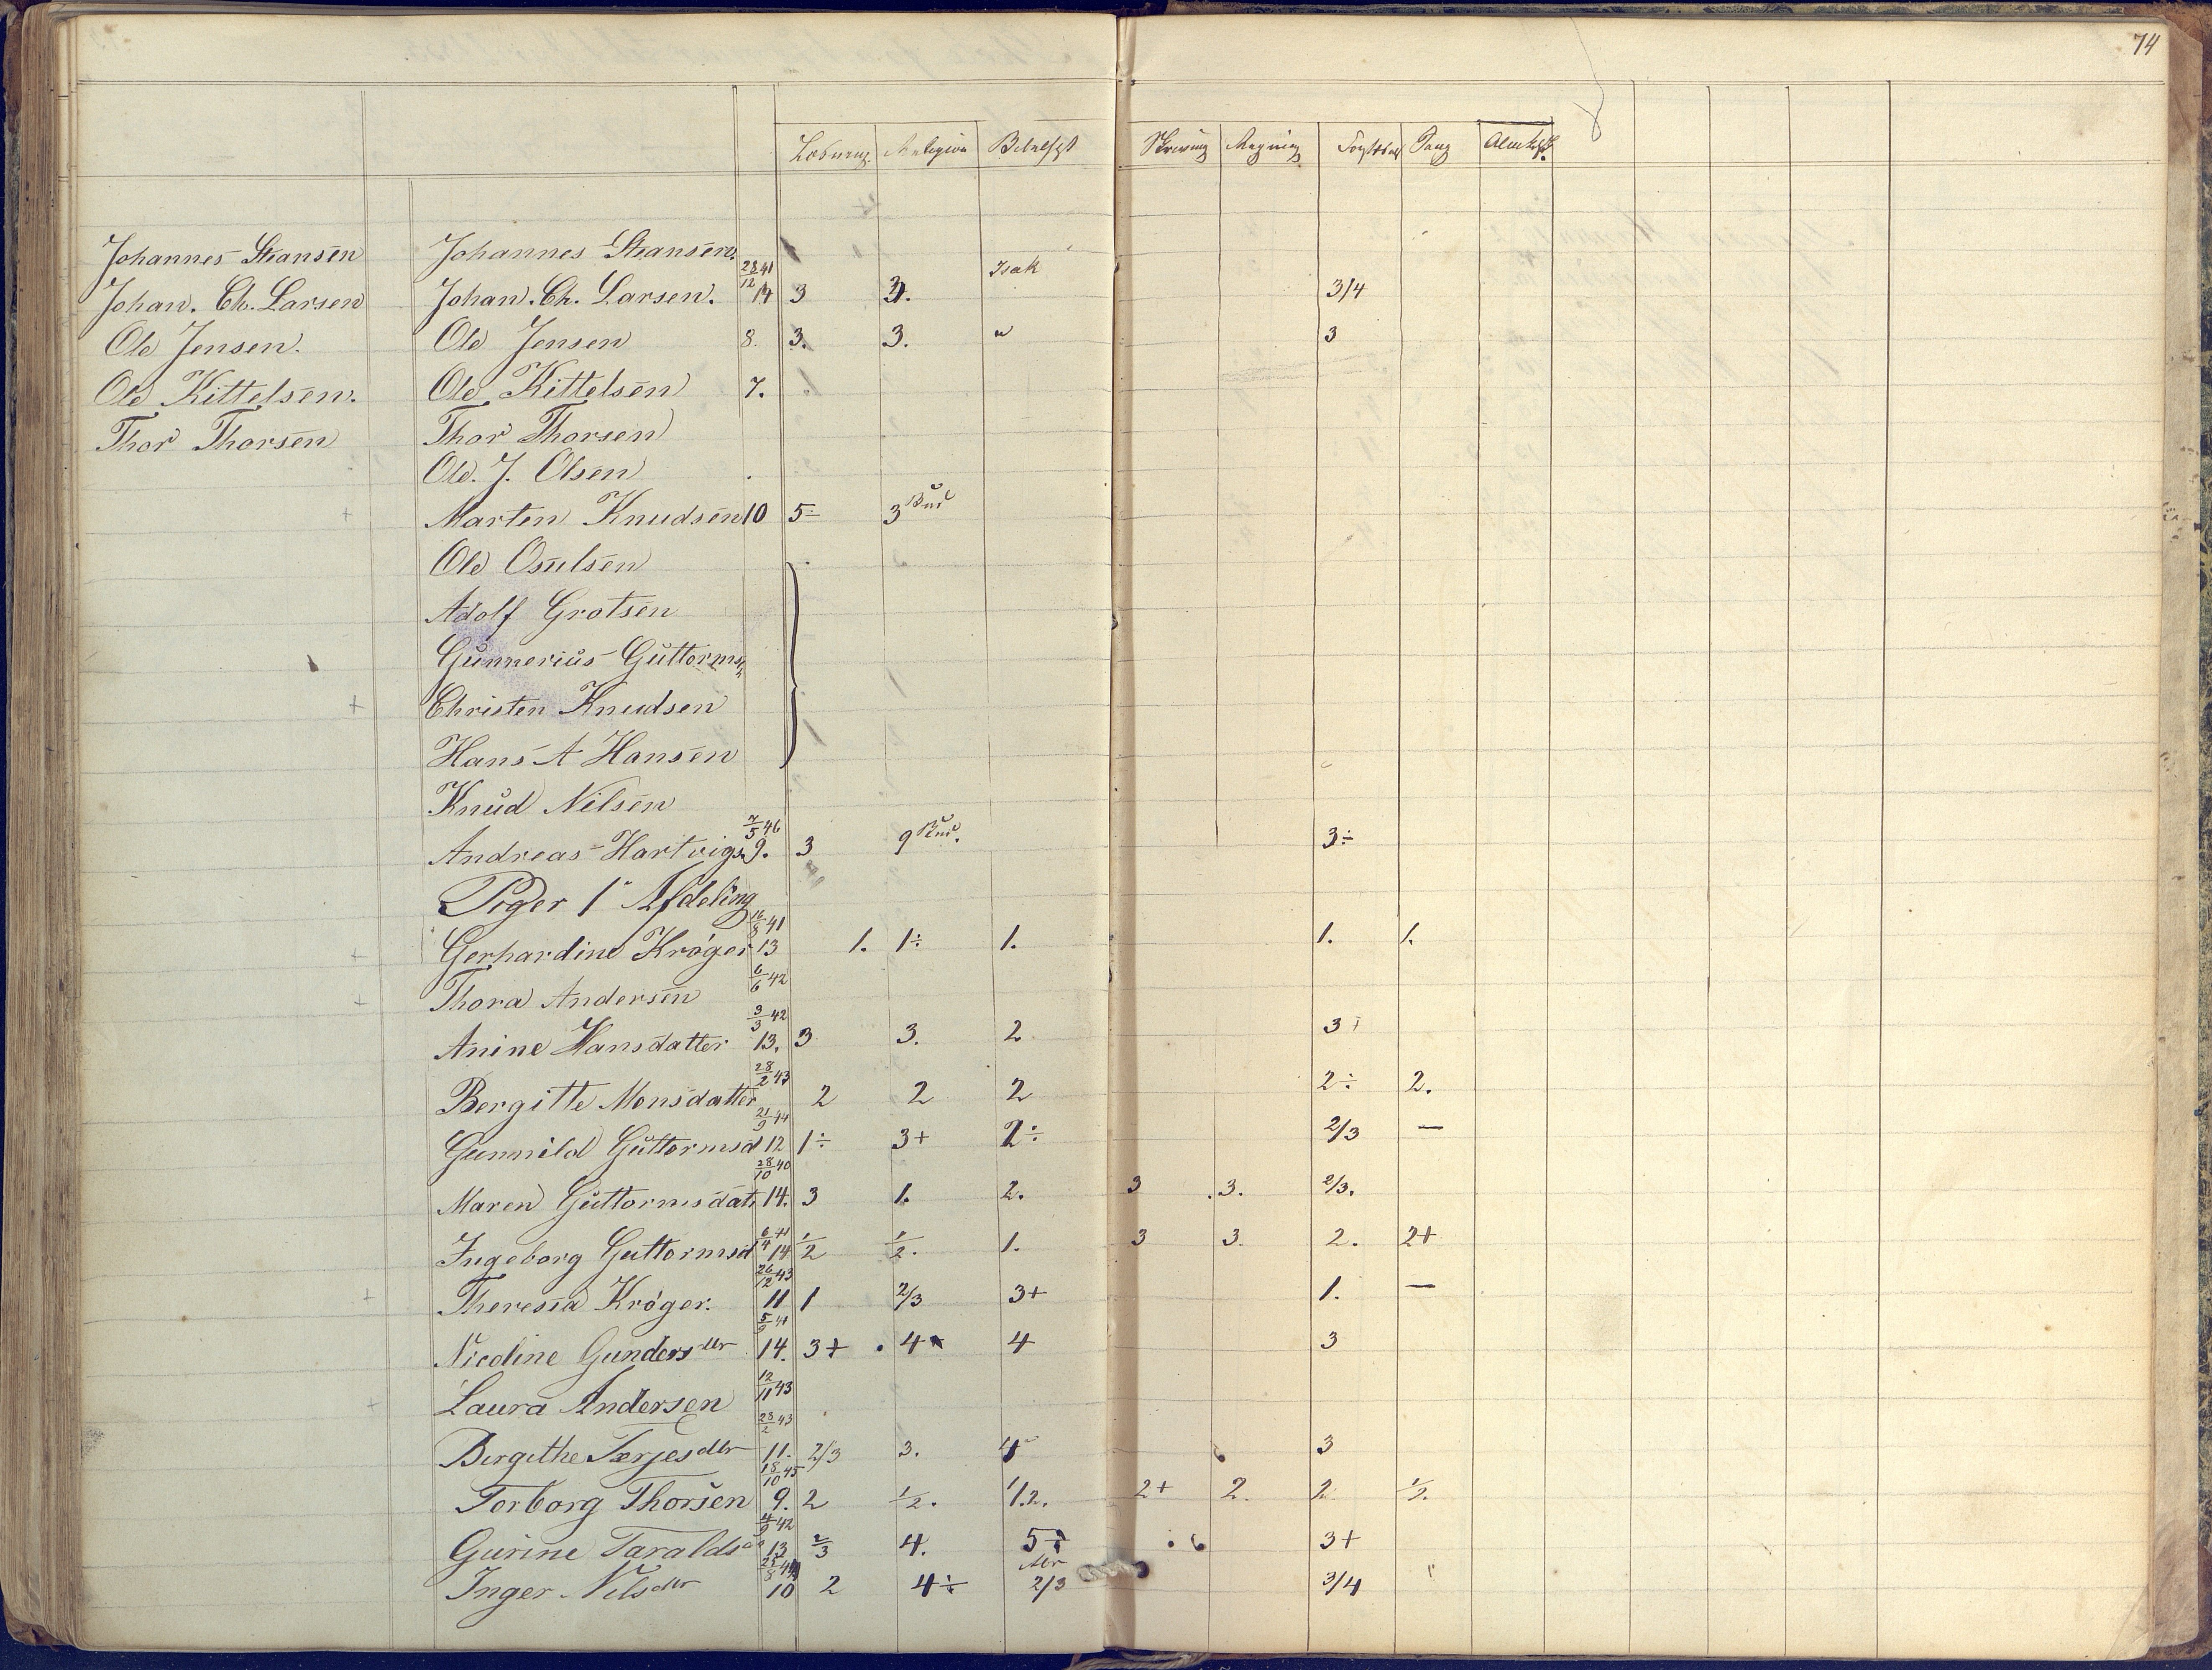 74
Læsning Religion Bibelhist Skrivning Regning Sang
Johannes Stiansen Johannes Stiansen
28/12 41 Isak
Johan. Ch. Larsen Johan. Ch. Larsen. 14 3 3. 3/4
Ole Jensen. Ole Jensen 8. 3. 3. " 3
Ole Kittelsen. Ole Kittelsen 7.
Thor Thorsen Thor Thorsen
Ole. J. Olsen
+ Marten Knudsen 10 5÷ 3 Bud
Ole Osulsen
Adolf Grotsen
Gunnerius Guttorms
+ Christen Knudsen
Hans A Hansen
Knud Nilsen
7/5 46
Andreas Hartvigs. 9. 3 9 Bud. 3÷
Piger 1ˢ Afdeling
16/8 41
+ Gerhardine Krøger 13 1. 1÷ 1. 1. 1.
6/6 42
+ Thora Andersen
3/3 42
Anine Hansdatter 13. 3 3. 2 3+
28/2 43
Bergitte Monsdatter 2 2 2 2÷ 2.
21/9 44
Gunnild Guttormsd 12 1÷ 3+ 2÷ 2/3 —
28/10 40
Maren Guttormsdatr 14. 3 1. 2. 3 3. 2/3.
6/4 41
Ingeborg Guttormsd 14 1/2 1/2. 1. 3 3. 2. 2+
26/12 43
+ Theresia Krøger. 11 1 2/3 3+ 1. —
5/9 41
Nicoline Gundersdtr 14. 3+ 4 4 3
12/11 43
+ Laura Andersen
23/2 43
Birgithe Terjesdtr 11. 2/3 3. 4 3
18/10 45
Torborg Thorsen 9. 2 1/2. 1/2. 2+ 2. 2 1/2.
4/9 42
Gurine Taralds 13 2/3 4. 5÷ 3+
25/8 44
Inger Nilsdtr 10 2 4÷ 2/3 3/4 "